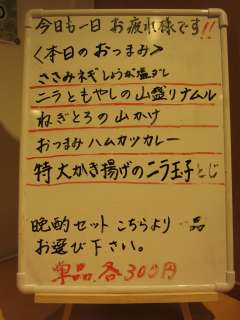 今日も一日 お疲れ様です!!
<本日のおつまみ>
ささみネギしょうが塩ダレ
ニラともやしの山盛りナムル
ねぎとろの山かけ
おつまみハムカツカレー
特大かき揚げのニラ玉子とじ
晩酌セット こちらより 一品
お選び下さい。
単品 各300円